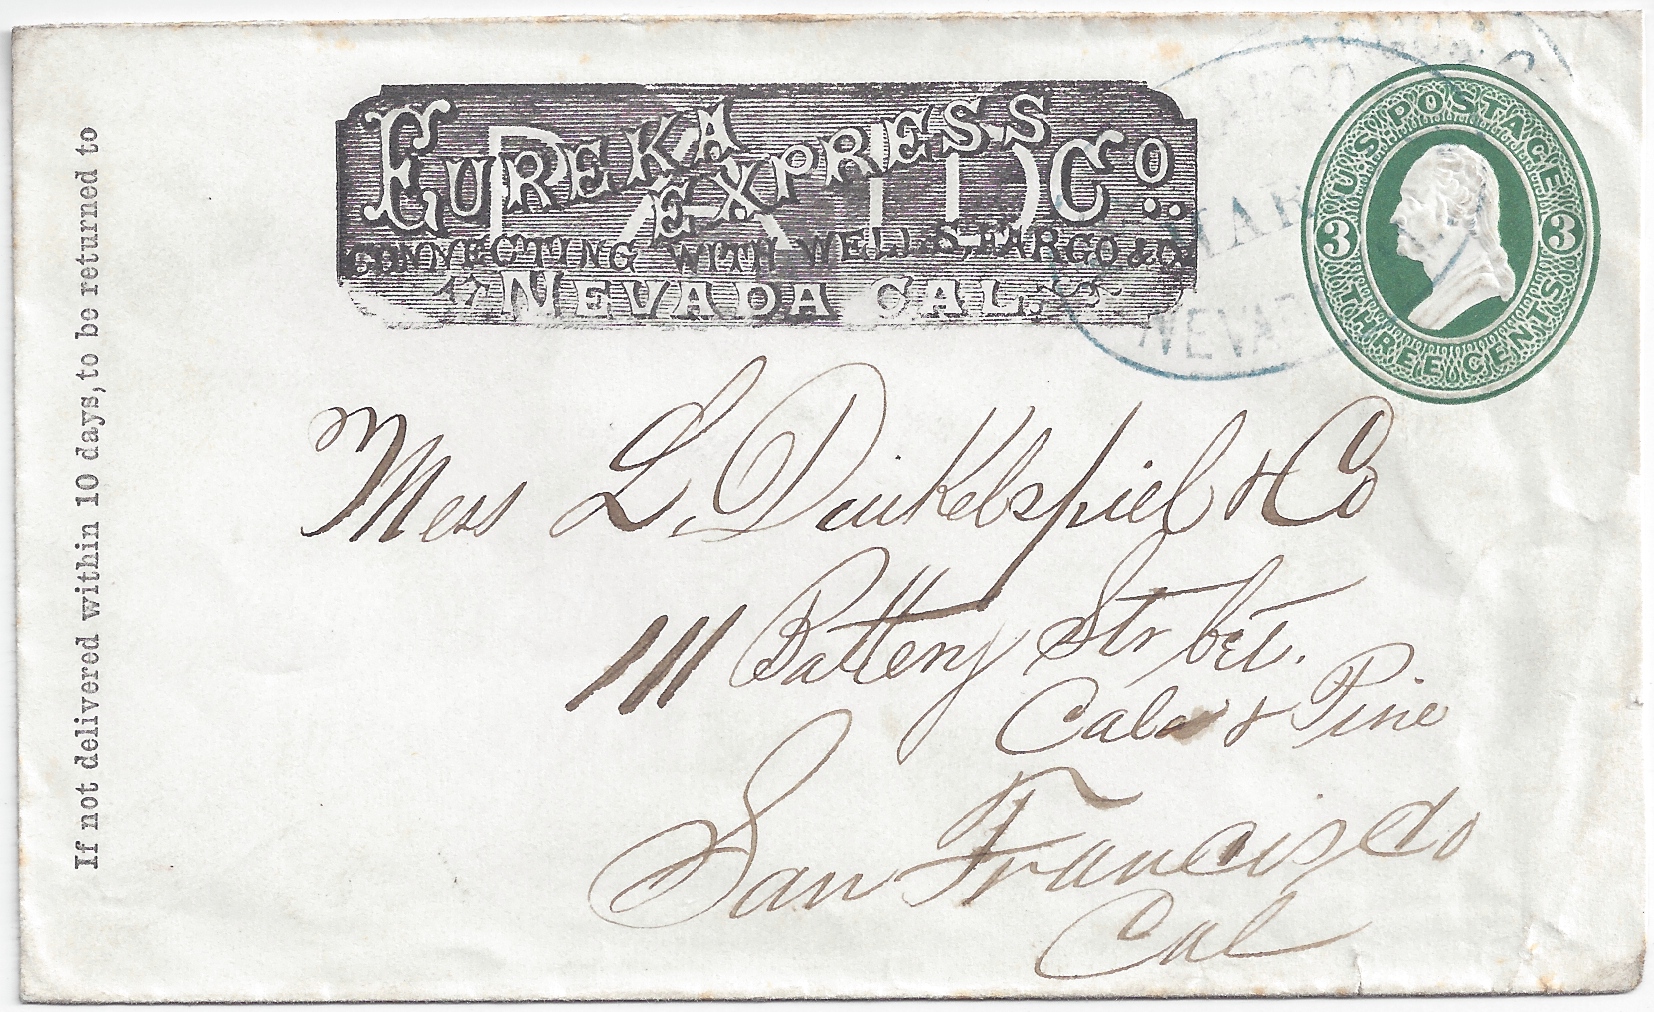 If not delivered within 10 days, to be returned to
EUREKA EXPRESS Co.
PAID
CONNECTING WITH WELLS, FARGO & Co
AT NEVADA CAL.
U.S. POSTAGE
3 3
THREE CENTS
MAR
NEVA
Mess L. Dinkelspiel & Co
111 Battery Str bet.
Cala & Pine
San Francisco
Cal